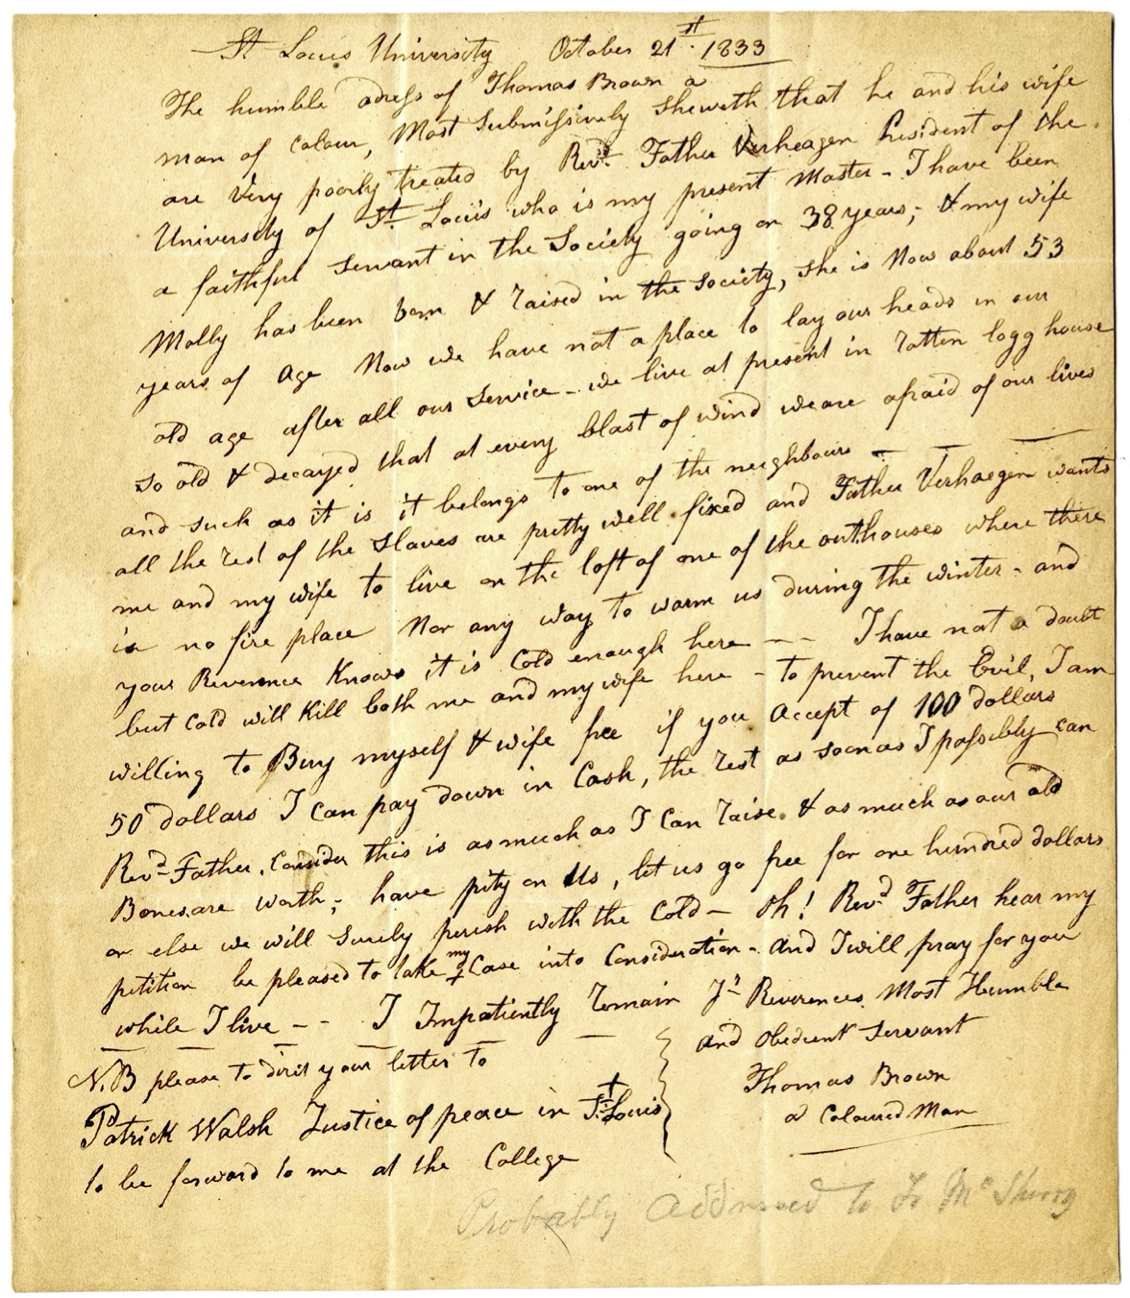 St Louis University October 21st. 1833
The humble adress of Thomas Brown a
man of Colour, Most Submissively Sheweth that he and his wife
are Very poorly treated by Revd. Father Verheagen President of the
University of St. Louis who is my present Master - I have been
a faithful Servant in the Society going on 38 years; & my wife
Molly has been born & raised in the Society, she is Now about 53
years of Age Now we have not a place to lay our heads in our
old age after all our Service - we live at present in rotten logg house
so old & decayed that at every blast of wind we are afraid of our lives
and such as it is it belongs to one of the neighbours —
all the rest of the Slaves are pretty well fixed and Father Verhaegen wants
me and my wife to live on the loft of one of the outhouses where there
is no fire place Nor any way to warm us during the winter - and
your Reverence Knows it is Cold enough here — — I have not a doubt
but Cold will Kill both me and my wife here - to prevent the Evil, I am
willing to Buy myself & wife free if you accept of 100 dollars
50 dollars I Can pay down in Cash, the rest as soon as I possibly can
Revd. Father, Consider this is as much as I Can raise. & as much as our old
Bones are worth; have pity on Us, let us go free for one hundred dollars
or else we will Surely perish with the Cold — Oh! Revd Father hear my
petition be pleased to take my Case into Consideration - And I will pray for you
while I live - - I Impatiently remain Yr Reverences Most Humble
and Obedient Servant
Thomas Brown
a Coloured Man
N.B please to dirit your letter to
Patrick Walsh Justice of peace in St. Louis
to be forward to me at the College
Probably Addressed to Fr McSherry